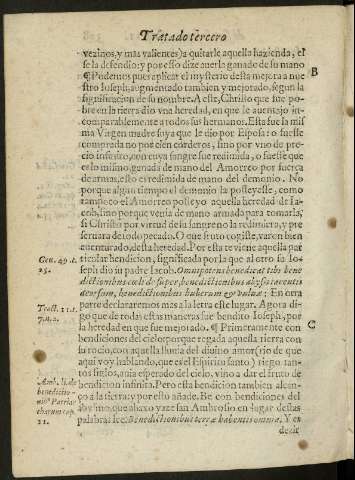 Tratado tercero
vezinos, y mas valientes) a quitarle aquella hazienda, el
se la defendio: y por esso dize auerla ganado de su mano
¶ Podemos pues aplicar el mysterio desta mejora a nue
B
stro Ioseph, augmentado tambien y mejorado, segun la
significacion de su nombre. A este, Christo que fue po-
bre en la tierra dio vna heredad, en que le auentajo in-
comparablemente a todos sus hermanos. Esta fue la mis
ma Virgen madre suya que le dio por Esposa: o fuesse
comprada no por cien corderos, sino por vno de pre-
cio infinito, con cuya sangre fue redimida, o fuesse que
es lo mismo, ganada de mano del Amorreo por fuerça
de armas, esto es redimida de mano del demonio. No
porque algun tiempo el demonio la posseyesse, como
tampoco el Amorreo posseyo aquella heredad de Ia-
cob, sino porque venia de mano armada para tomarla,
si Christo por virtud de su sangre no la redimiera, y pre
seruara de todo pecado. O que sento cogiste, varon bien
auenturado, desta heredad. Por esta te viene aquella par
Gen. 49. d.
25.
ticular bendicion, significada por la que al otro san Io-
seph dio su padre Iacob. Omnipotens benedicat tibi bene
dictionibus cœli desuper, benedictionibus abyssi iacentis
deorsum, benedictionibus vberum & vuluæ: En otra
Tract. 2. l. 1.
parte declararemos mas a la letra este lugar. Agora di-
go que de todas estas maneras fue bendito Ioseph, por
C
la heredad en que fue mejorado. ¶ Primeramente con
bendiciones del cielo: porque regada aquella tierra con
su rocio, con aquella lluuia del diuino amor (rio de que
aqui voy hablando, que es el Espiritu santo) riego tan-
tos siglos, auia esperado del cielo, vino a dar el fruto de
Amb. li. de
benedictio-
nib⁹ Patriar
charum cap.
11.
bendicion infinita. Pero esta bendicion tambien alcan-
ço a la tierra: y por esto añade. Be con bendiciones del
abysmo, que abaxo yaze san Ambrosio en lugar destas
palabras lee: Benedictionibus terræ habentis omnia. Y es
dezir